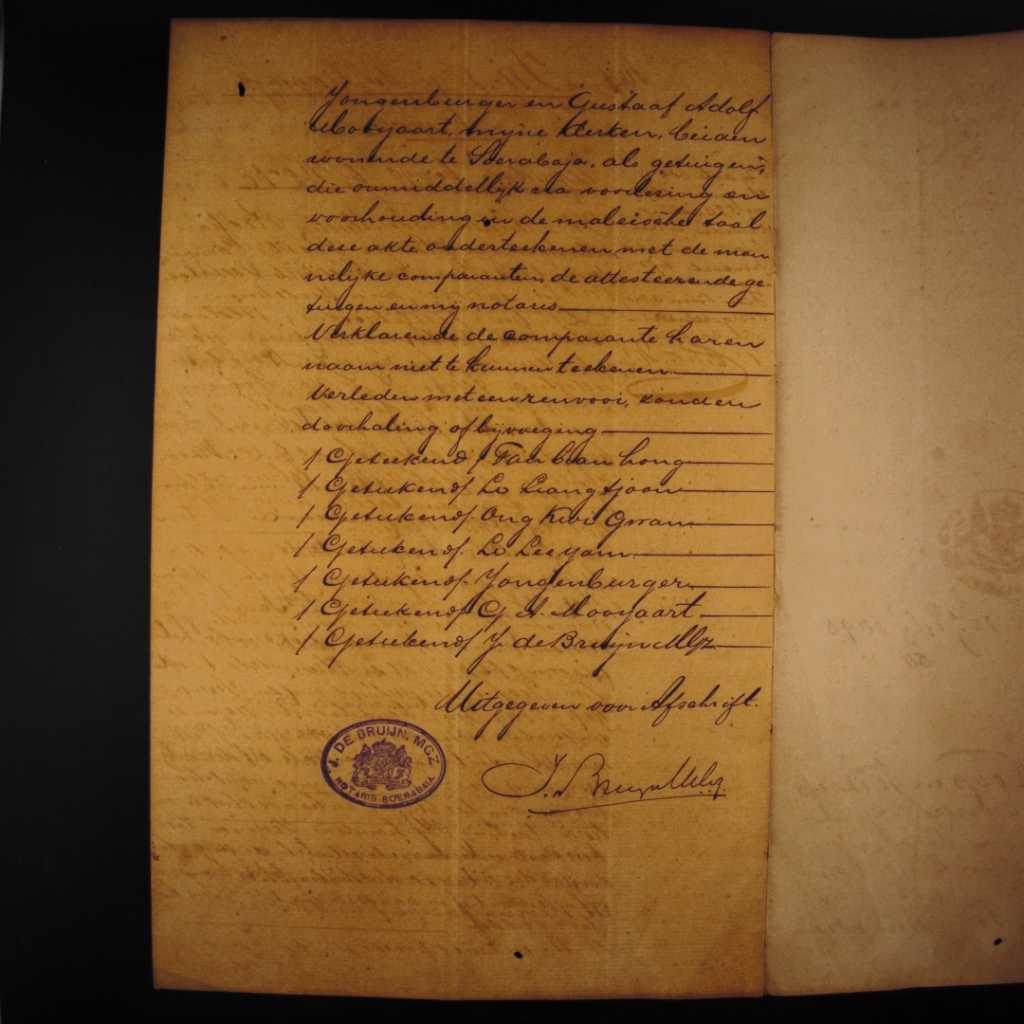 Jongenburger en Gustaaf Adolf
Mooyaart, mijne klerken, beiden
wonende te Soerabaja, als getuigen,
die onmiddellijk na voorlezing en
voorhouding in de maleische taal
deze akte onderteekenen met de man
nelijke comparanten, de attesteerende ge-
tuigen en mij notaris
Verklarende de comparante haren
naam niet te kunnen teekenen
Verleden met een renvooi, zonder
doorhaling of bijvoeging
/ Geteekend / Tan Tian Long
/ Geteekend /. Lo Liang tjoan
/ Geteekend /. Ong Kwi Gwan
/ Geteekend /. Lo Lee yam
/ Geteekend /. Jongenburger
/ Geteekend / G A. Mooyaart
/ Geteekend / J. de Bruijn Mgz
Uitgegeven voor Afschrift.
J. DE BRUIJN. MGZ
NOTARIS SOERABAIA
J. d Bruijn Mgz.